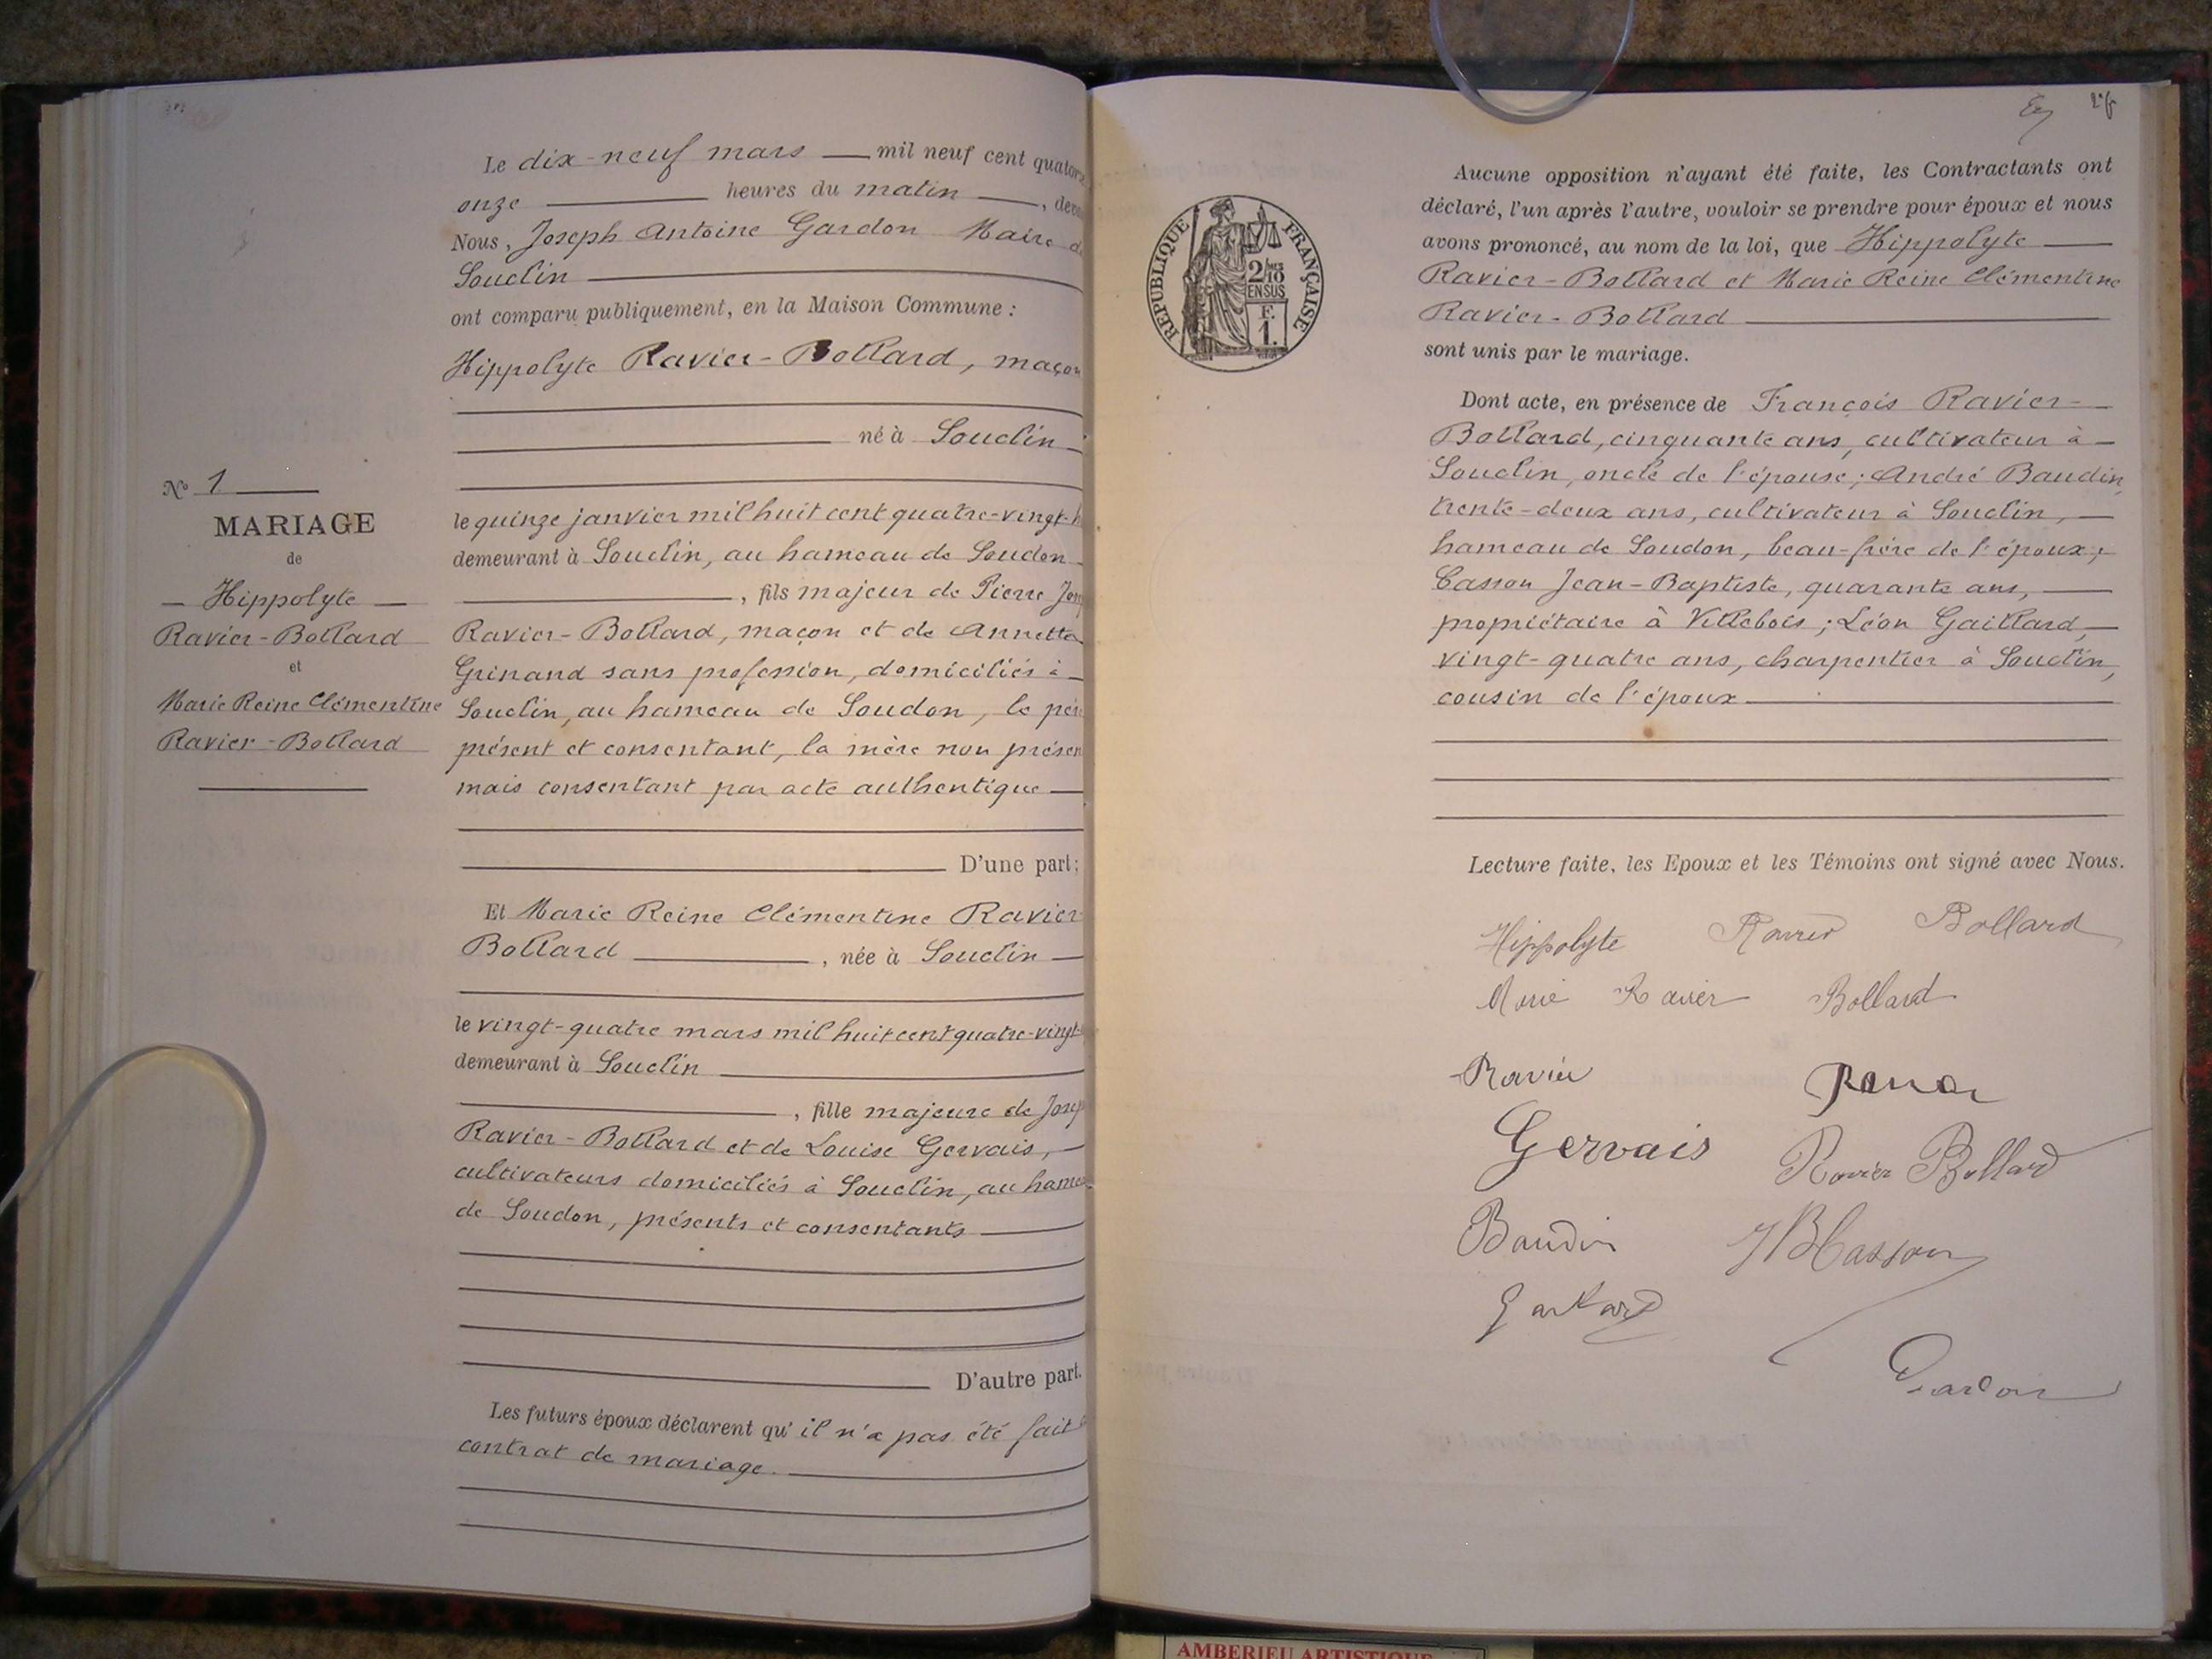 Le dix-neuf mars — mil neuf cent quatorz
onze — heures du matin —, deva
Nous, Joseph Antoine Gardon Maire d
Souclin
ont comparu publiquement, en la Maison Commune :
Hippolyte Ravier-Bollard, maçon
né à Souclin
le quinze janvier mil huit cent quatre-vingt-h
demeurant à Souclin, au hameau de Soudon
, fils majeur de Pierre Jos
Ravier-Bollard, maçon et de Annette
Grinand sans profession, domiciliés à
Souclin, au hameau de Soudon, le père
présent et consentant, la mère non présen
mais consentant par acte authentique
D'une part;
Et Marie Reine Clémentine Ravier
Bollard —, née à Souclin
le vingt-quatre mars mil huit cent quatre-vingt-
demeurant à Souclin
, fille majeure de Josep
Ravier-Bollard et de Louise Gervais,
cultivateurs domiciliés à Souclin, au hamea
de Soudon, présents et consentants
D'autre part.
Les futurs époux déclarent qu'il n'a pas été fait
contrat de mariage.
N° 1
MARIAGE
de
Hippolyte
Ravier-Bollard
et
Marie Reine Clémentine
Ravier-Bollard
REPUBLIQUE FRANÇAISE
2/10
EN SUS
F.
1.
Aucune opposition n'ayant été faite, les Contractants ont
déclaré, l'un après l'autre, vouloir se prendre pour époux et nous
avons prononcé, au nom de la loi, que Hippolyte
Ravier-Bollard et Marie Reine Clémentine
Ravier-Bollard
sont unis par le mariage.
Dont acte, en présence de François Ravier-
Bollard, cinquante ans, cultivateur à
Souclin, oncle de l'épouse; André Baudin,
trente-deux ans, cultivateur à Souclin,
hameau de Soudon, beau-frère de l'époux;
Casson Jean-Baptiste, quarante ans,
propriétaire à Villebois; Léon Gaillard,
vingt-quatre ans, charpentier à Souclin,
cousin de l'époux
Lecture faite, les Epoux et les Témoins ont signé avec Nous.
Hippolyte Ravier Bollard
Marie Ravier Bollard
Ravier
Gervais Ravier Bollard
Baudin JB Casson
Gardon
AMBERIEU ARTISTIQUE